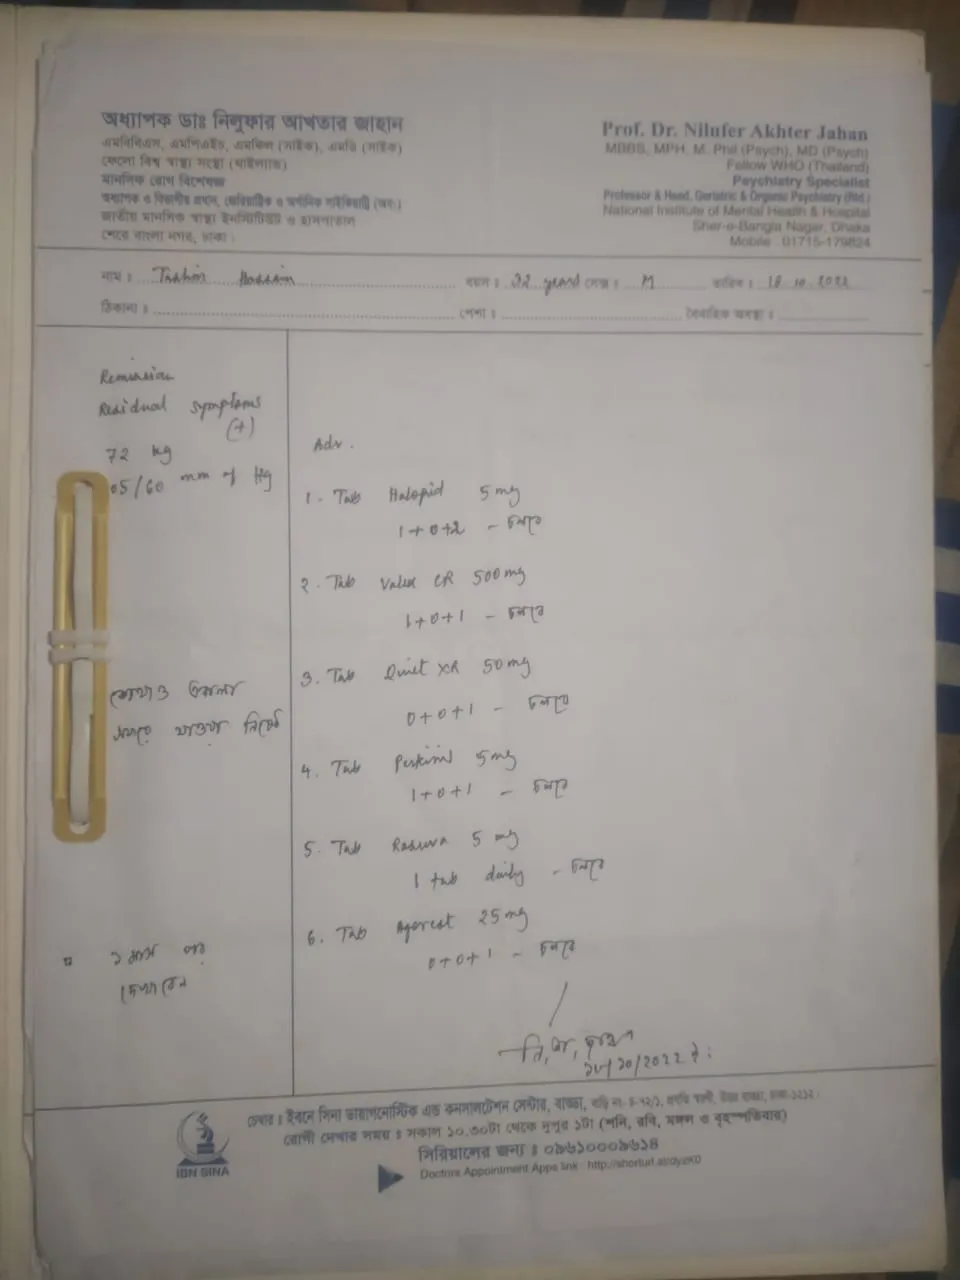 অধ্যাপক ডাঃ নিলুফার আখতার জাহান
এমবিবিএস, এমপিএইচ, এমফিল (সাইক), এমডি (সাইক)
ফেলো বিশ্ব স্বাস্থ্য সংস্থা (থাইল্যান্ড)
মানসিক রোগ বিশেষজ্ঞ
অধ্যাপক ও বিভাগীয় প্রধান, জেরিয়াট্রিক ও অর্গানিক সাইকিয়াট্রি (অবঃ)
জাতীয় মানসিক স্বাস্থ্য ইনস্টিটিউট ও হাসপাতাল
শেরে বাংলা নগর, ঢাকা।
Prof. Dr. Nilufer Akhter Jahan
MBBS, MPH. M. Phil (Psych), MD (Psych)
Fellow WHO (Thailand)
Psychiatry Specialist
Professor & Head, Geriatric & Organic Psychiatry (Rtd.)
National Institute of Mental Health & Hospital
Sher-e-Bangla Nagar, Dhaka
Mobile : 01715-179824
নাম : Hossain বয়স : 22 years সেক্স : M তারিখ : 18.10.2022
ঠিকানা : পেশা : বৈবাহিক অবস্থা :
Remission
Residual symptoms
(+)
72 kg
05/60 mm of Hg
Adv.
1. Tab Halopid 5 mg
1+0+2 - চলবে
2. Tab Valex CR 500 mg
1+0+1 - চলবে
3. Tab Quiet XR 50 mg
0+0+1 - চলবে
4. Tab Perkinil 5 mg
1+0+1 - চলবে
5. Tab Rosuva 5 mg
1 tab daily - চলবে
6. Tab 25 mg
0+0+1 - চলবে
১ মাস পর
দেখাবেন
১৮/১০/2022
IBN SINA
চেম্বার : ইবনে সিনা ডায়াগনোস্টিক এন্ড কনসালটেশন সেন্টার, বাড্ডা,
রোগী দেখার সময় : সকাল ১০.৩০টা থেকে দুপুর ১টা (শনি, রবি, মঙ্গল ও বৃহস্পতিবার)
সিরিয়ালের জন্য : ০৯৬১০০০৯৬১৪
Doctors Appointment Apps link :